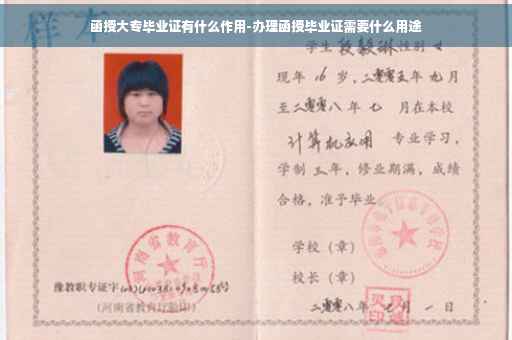 函授大专毕业证有什么作用-办理函授毕业证需要什么用途
样本
学生段毅琳性别女
现年16岁，二零零五年九月
至二零零八年七月在本校
计算机应用 专业学习，
学制三年，修业期满，成绩
合格，准予毕业。
学校（章）
校长（章）
二零零八年七月一日
河南省教育厅
豫教职专证字
（河南省教育厅验印）